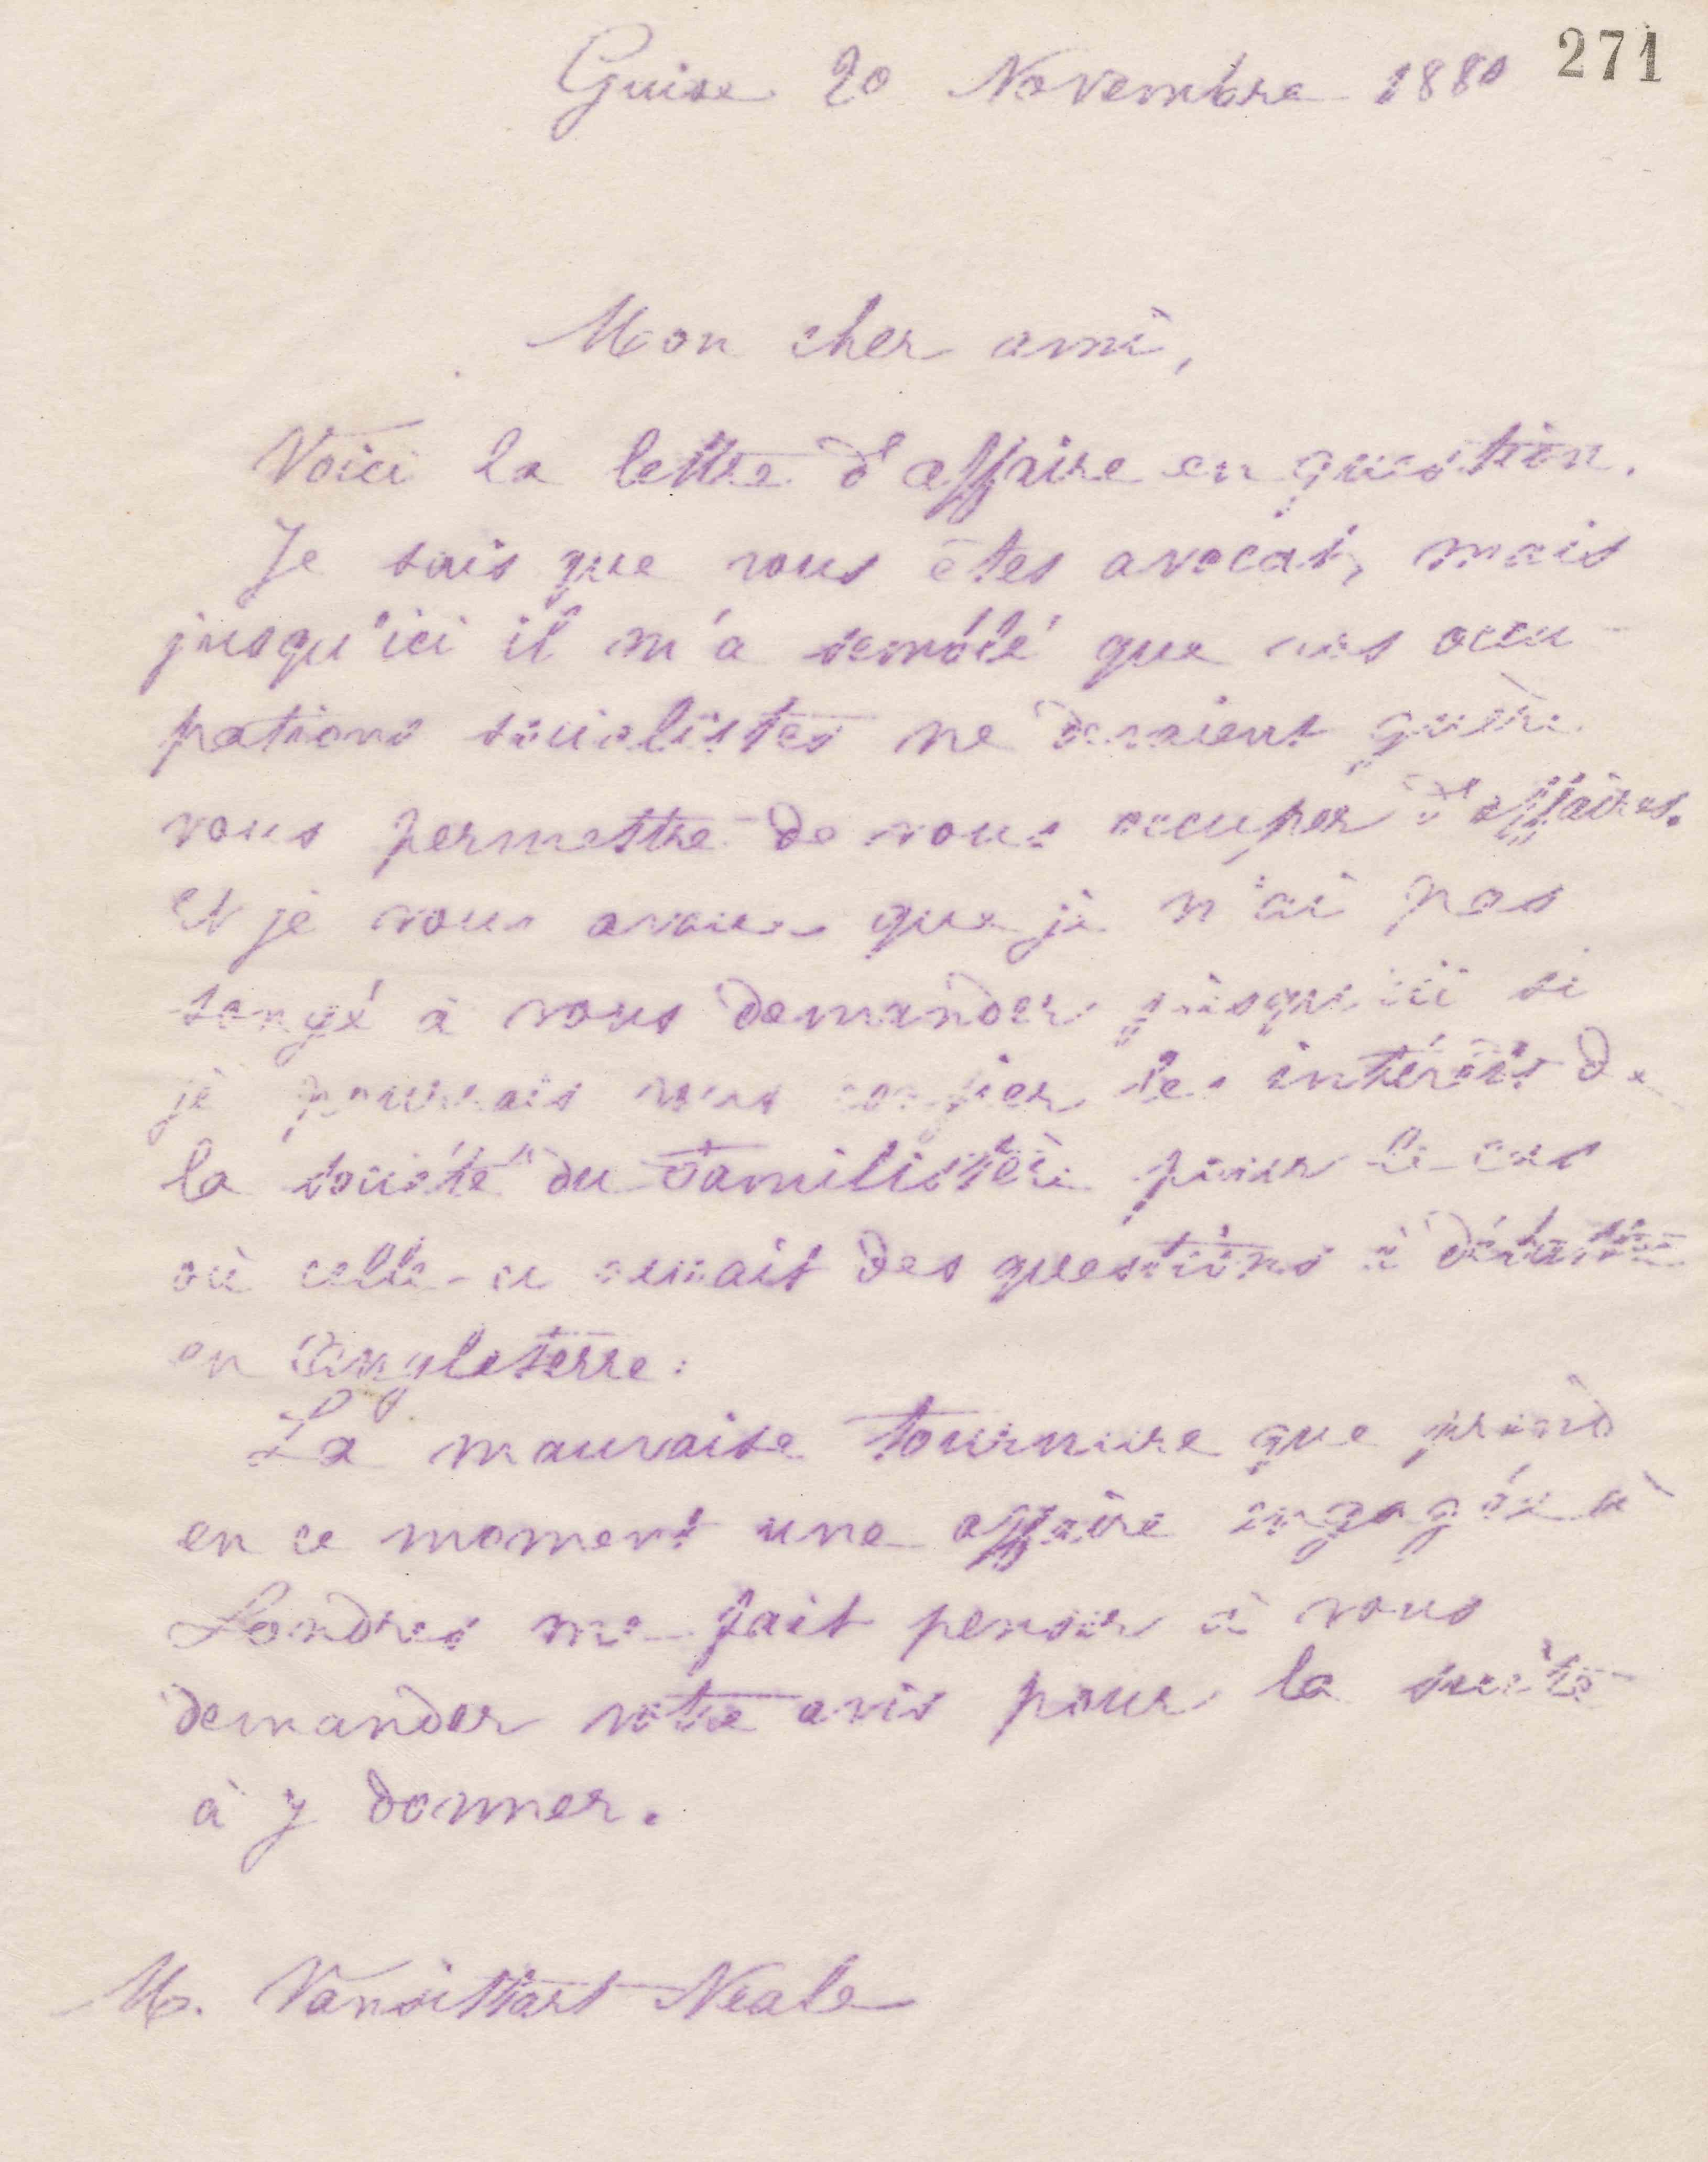 271
Guise 20 Novembre 1880
Mon cher ami,
Voici la lettre d'affaire en question.
Je sais que vous êtes avocat, mais
jusqu'ici il m'a semblé que vos occu-
pations socialistes ne devaient guère
vous permettre de vous occuper d'affaires.
Et je vous avoue que je n'ai pas
songé à vous demander jusqu'ici si
je pourrais vous confier les intérêts de
la société du Familistère pour le cas
où celle-ci aurait des questions à débattre
en Angleterre.
La mauvaise tournure que prend
en ce moment une affaire engagée à
Londres me fait penser à vous
demander votre avis pour la suite
à y donner.
M. Vansittart Neale